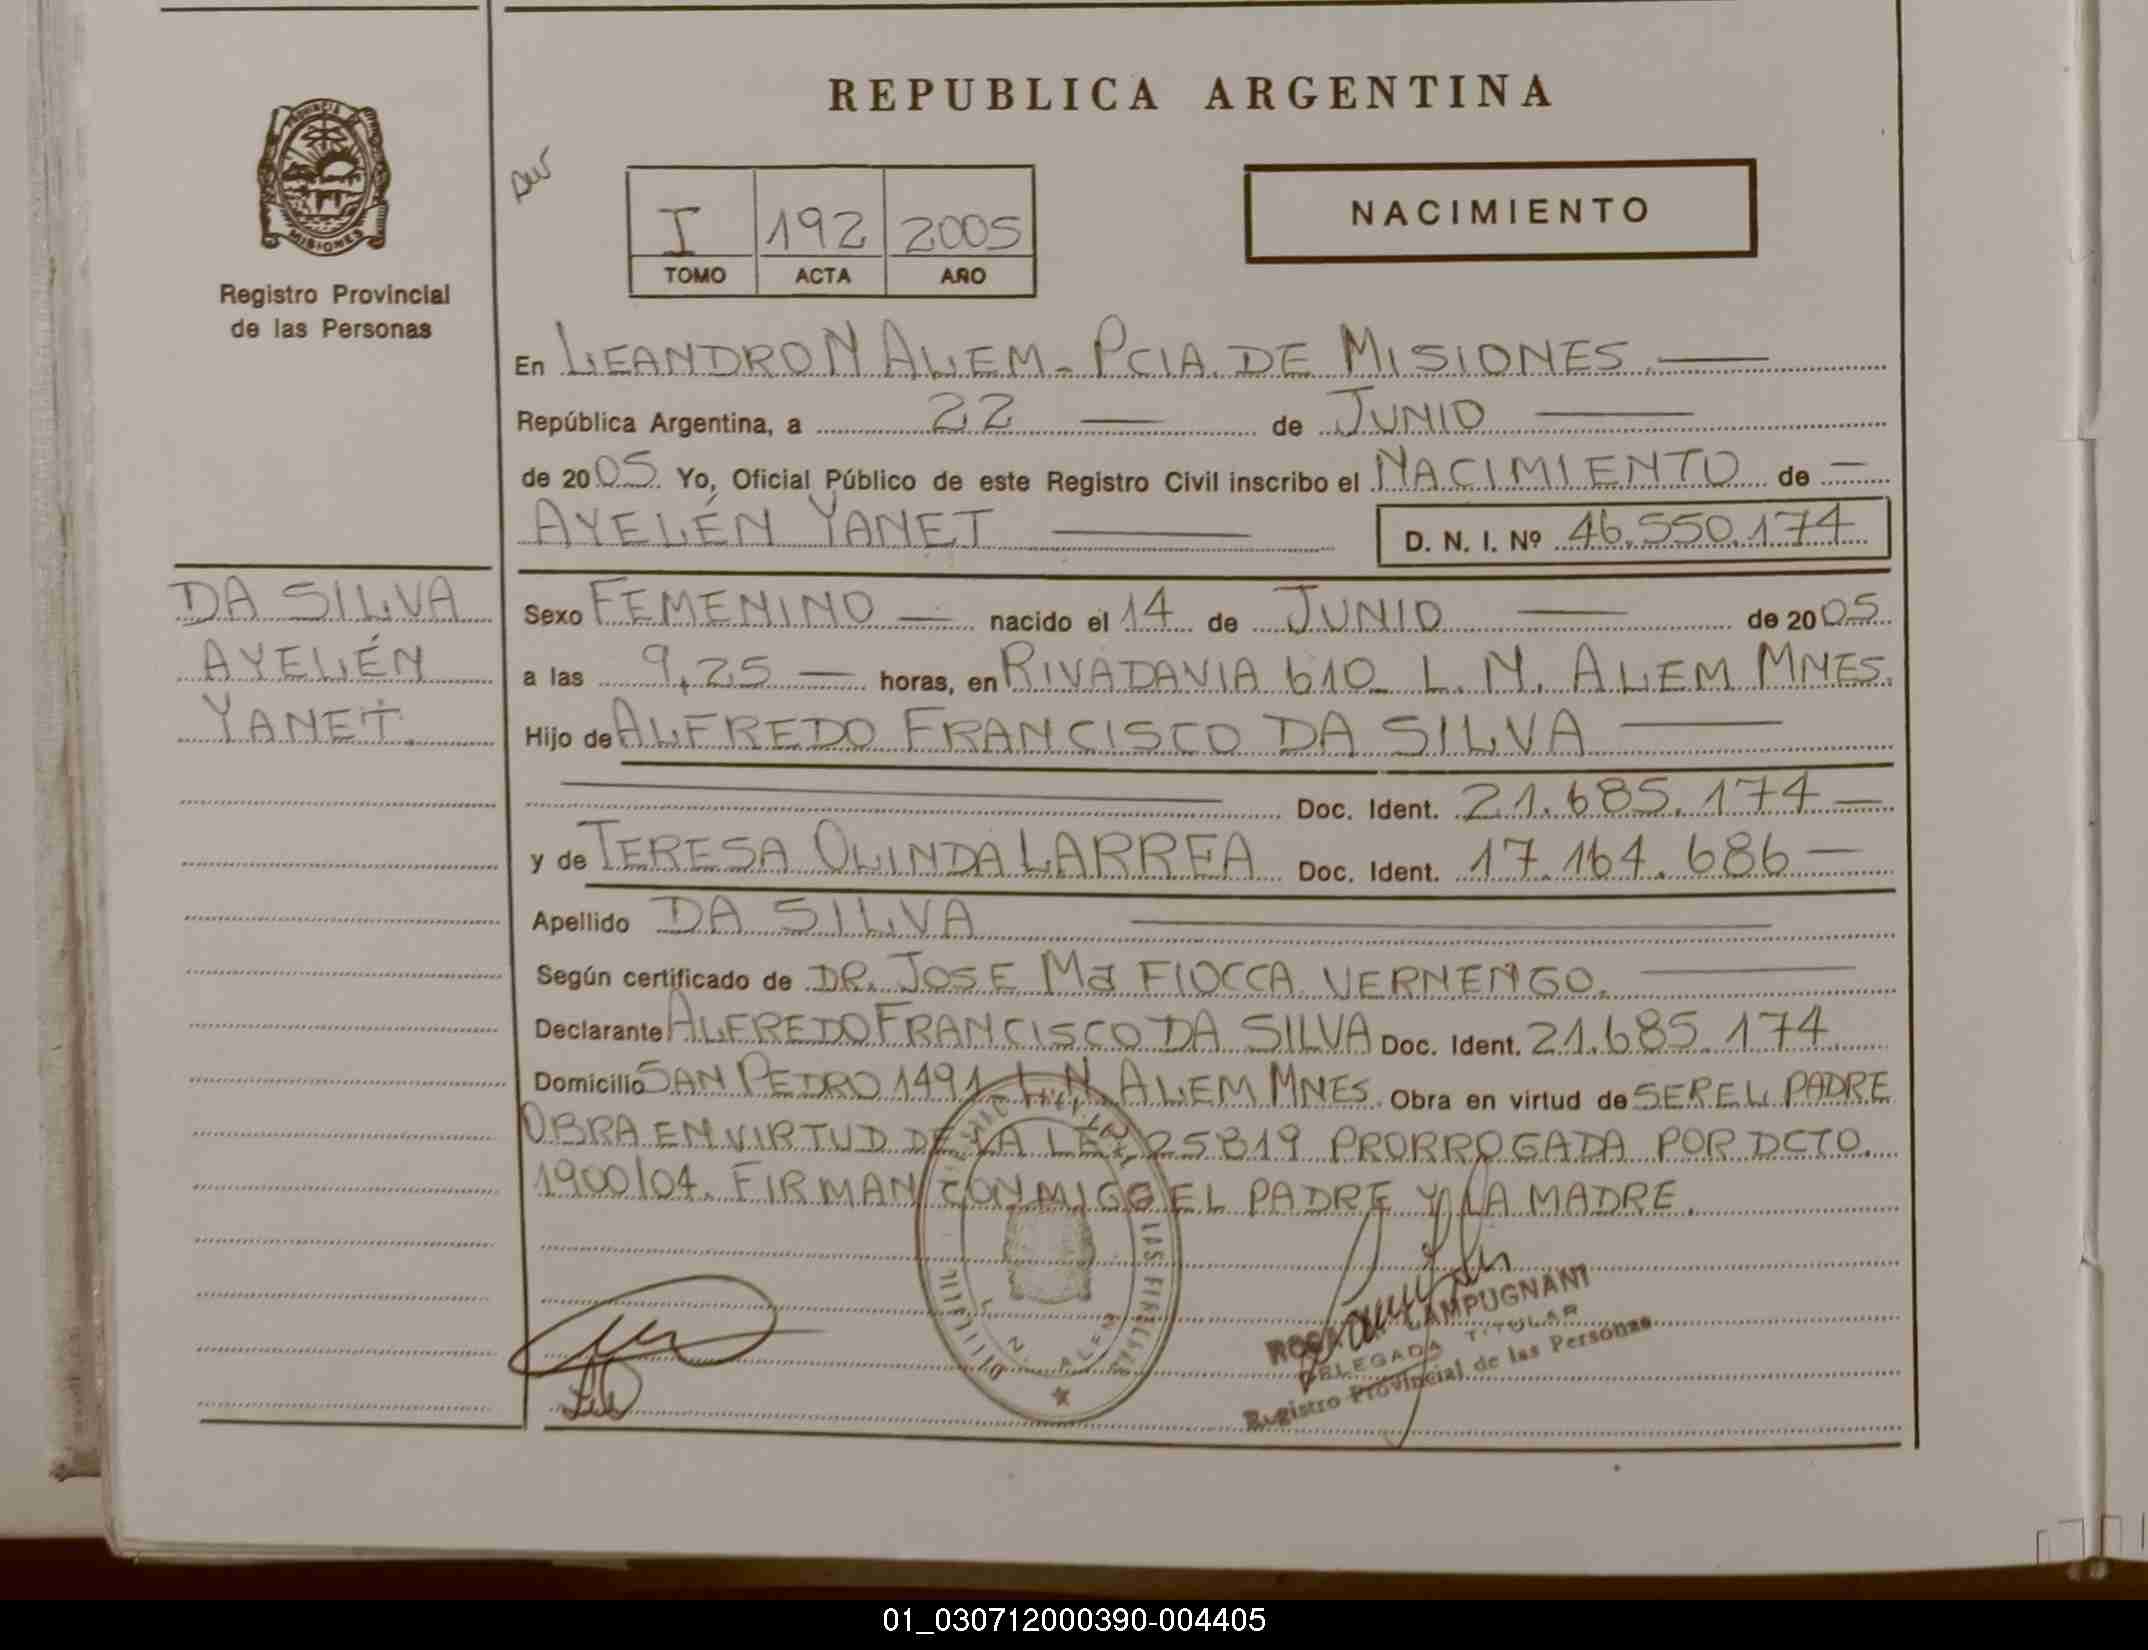 REPUBLICA ARGENTINA
PROVINCIA DE
MISIONES
Registro Provincial
de las Personas
I 192 2005
TOMO ACTA AÑO
NACIMIENTO
En LEANDRO N ALEM - PCIA. DE MISIONES.
República Argentina, a 22 de JUNIO
de 2005. Yo, Oficial Público de este Registro Civil inscribo el NACIMIENTO de
AYELÉN YANET D. N. I. Nº 46.550.174
DA SILVA
AYELÉN
YANET.
Sexo FEMENINO nacido el 14 de JUNIO de 2005
a las 9,25 horas, en RIVADAVIA 610 L. N. ALEM MNES.
Hijo de ALFREDO FRANCISCO DA SILVA
Doc. Ident. 21.685.174
y de TERESA OLINDA LARREA Doc. Ident. 17.164.686
Apellido DA SILVA
Según certificado de DR. JOSE Ma FIOCCA VERNENGO.
Declarante ALFREDO FRANCISCO DA SILVA Doc. Ident. 21.685.174
Domicilio SAN PEDRO 1491 L. N. ALEM MNES. Obra en virtud de SER EL PADRE
OBRA EN VIRTUD DE LA LEY 25819 PRORROGADA POR DCTO.
1900/04. FIRMAN CONMIGO EL PADRE Y LA MADRE.
L. N. ALEM
LAMPUGNANI
DELEGADA TITULAR
Registro Provincial de las Personas
01_030712000390-004405